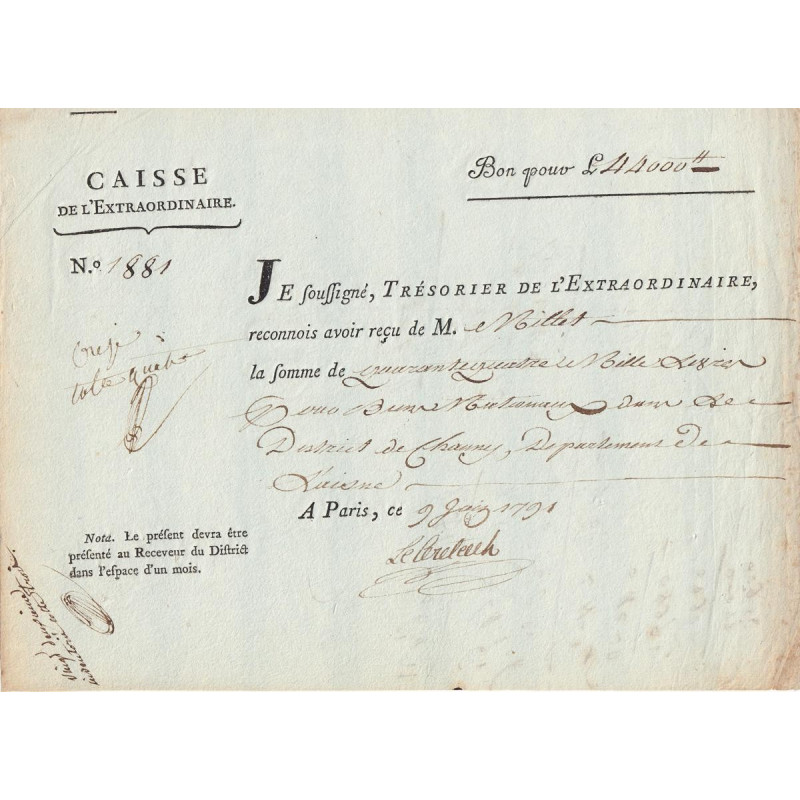 CAISSE
DE L'EXTRAORDINAIRE.
N.º 1881
Bon pour £ 44000 ₶
JE souſſigné, TRÉSORIER DE L'EXTRAORDINAIRE,
reconnois avoir reçu de M. Millet
la ſomme de quarante quatre Mille Livres
Pour Biens Nationaux dans Le
District de Chauny, Département de
L'aisne
A Paris, ce 9 Juin 1791
Le Couteulx
Nota. Le préſent devra être
préſenté au Receveur du Diſtrict
dans l'eſpace d'un mois.